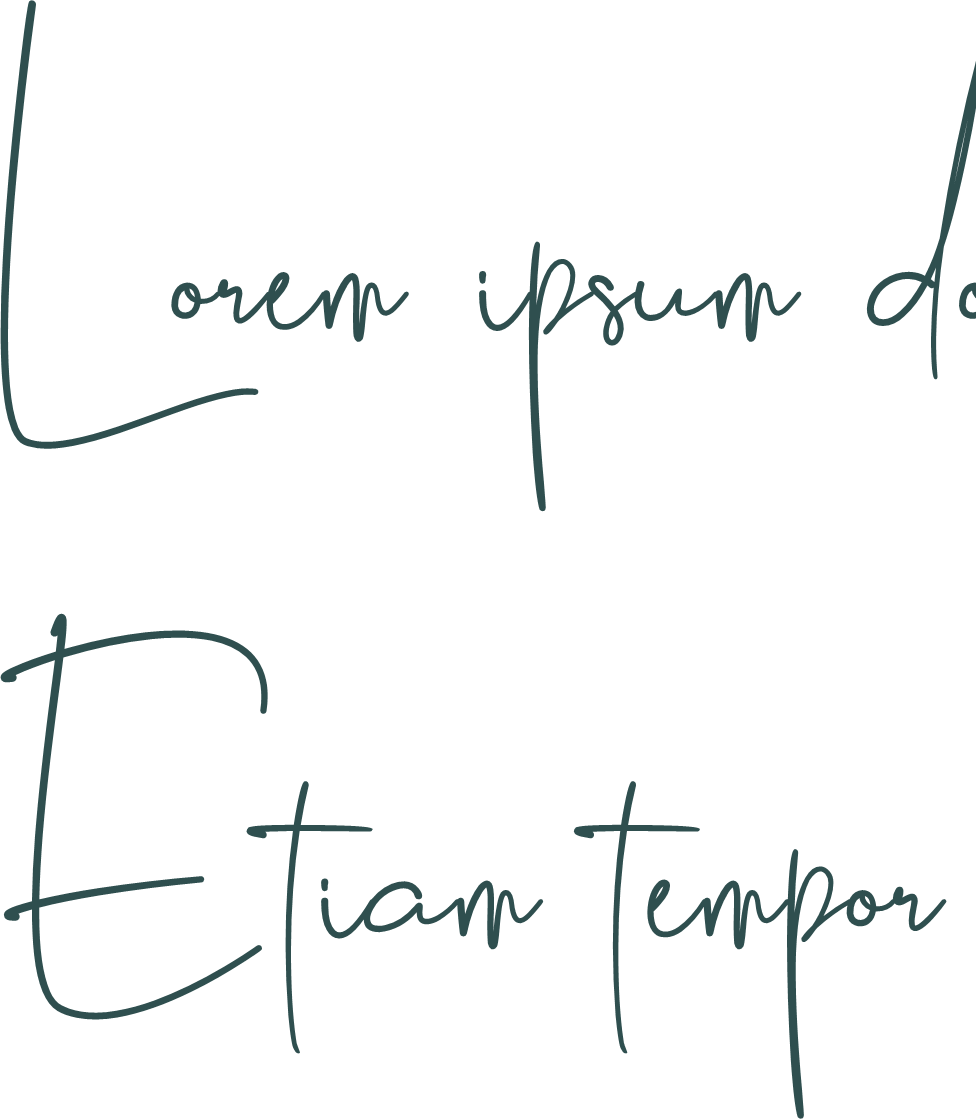 Lorem ipsum do
Etiam tempor